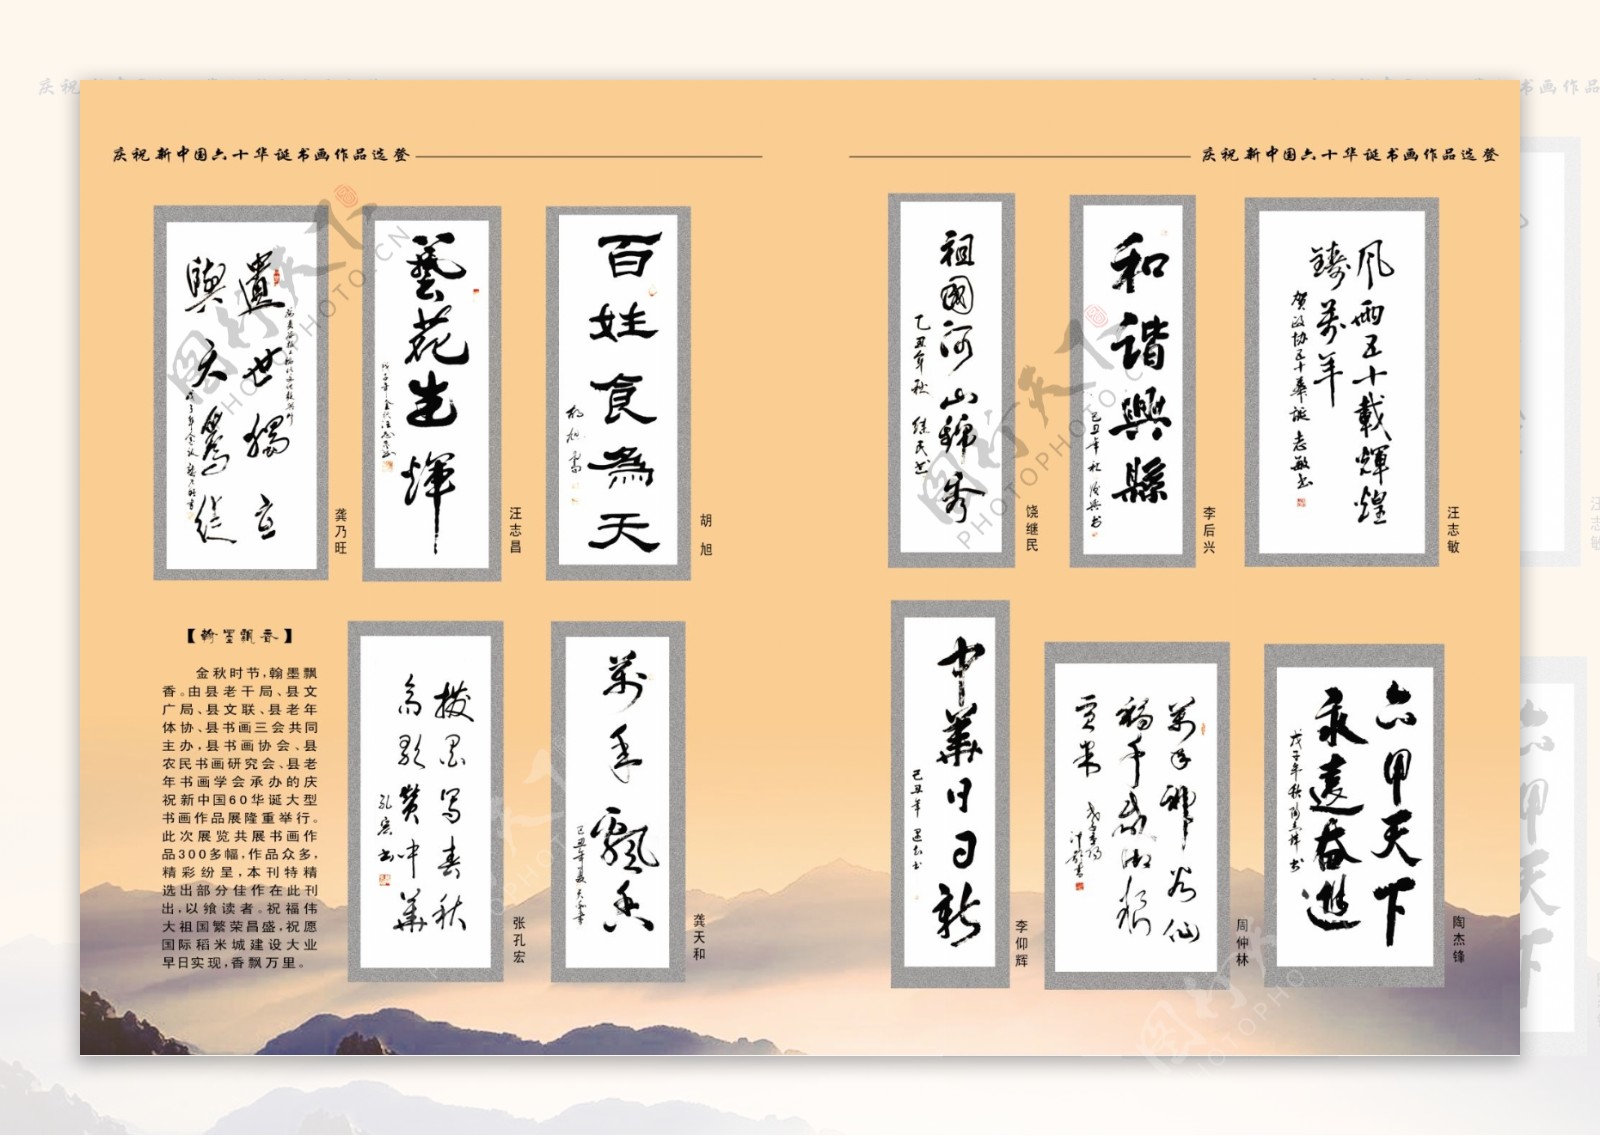 庆祝新中国六十华诞书画作品选登
庆祝新中国六十华诞书画作品选登
遗世独立
与天为徒
龚乃旺
艺花生辉
汪志昌
百姓食为天
胡旭
祖國河山锦秀
乙丑年秋 继民书
饶继民
和谐興縣
李后兴
风雨五十載輝煌
鑄萬年
贺政协五十華诞 志敏书
汪志敏
【翰墨飘香】
金秋时节,翰墨飘
香。由县老干局、县文
广局、县文联、县老年
体协、县书画三会共同
主办,县书画协会、县
农民书画研究会、县老
年书画学会承办的庆
祝新中国60华诞大型
书画作品展隆重举行。
此次展览共展书画作
品300多幅,作品众多,
精彩纷呈,本刊特精
选出部分佳作在此刊
出,以飨读者。祝福伟
大祖国繁荣昌盛,祝愿
国际稻米城建设大业
早日实现,香飘万里。
拨墨写春秋
高歌赞中華
孔宏书
张孔宏
萬年飄香
龚天和
中華日日新
李仰辉
周仲林
六甲天下
永遠奋進
戊子年秋陶杰锋书
陶杰锋
PHOTOPHOTO.CN